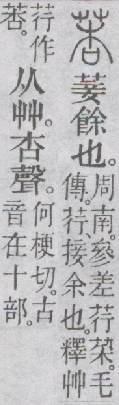 莕 菨餘也。周南。參差荇菜。毛
傳。荇、接余也。釋艸
荇作
莕。从艸。杏聲。何梗切。古
音在十部。